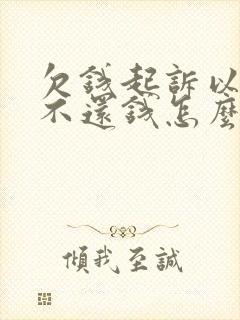 欠錢起訴以
不還錢怎麼
傾我至誠